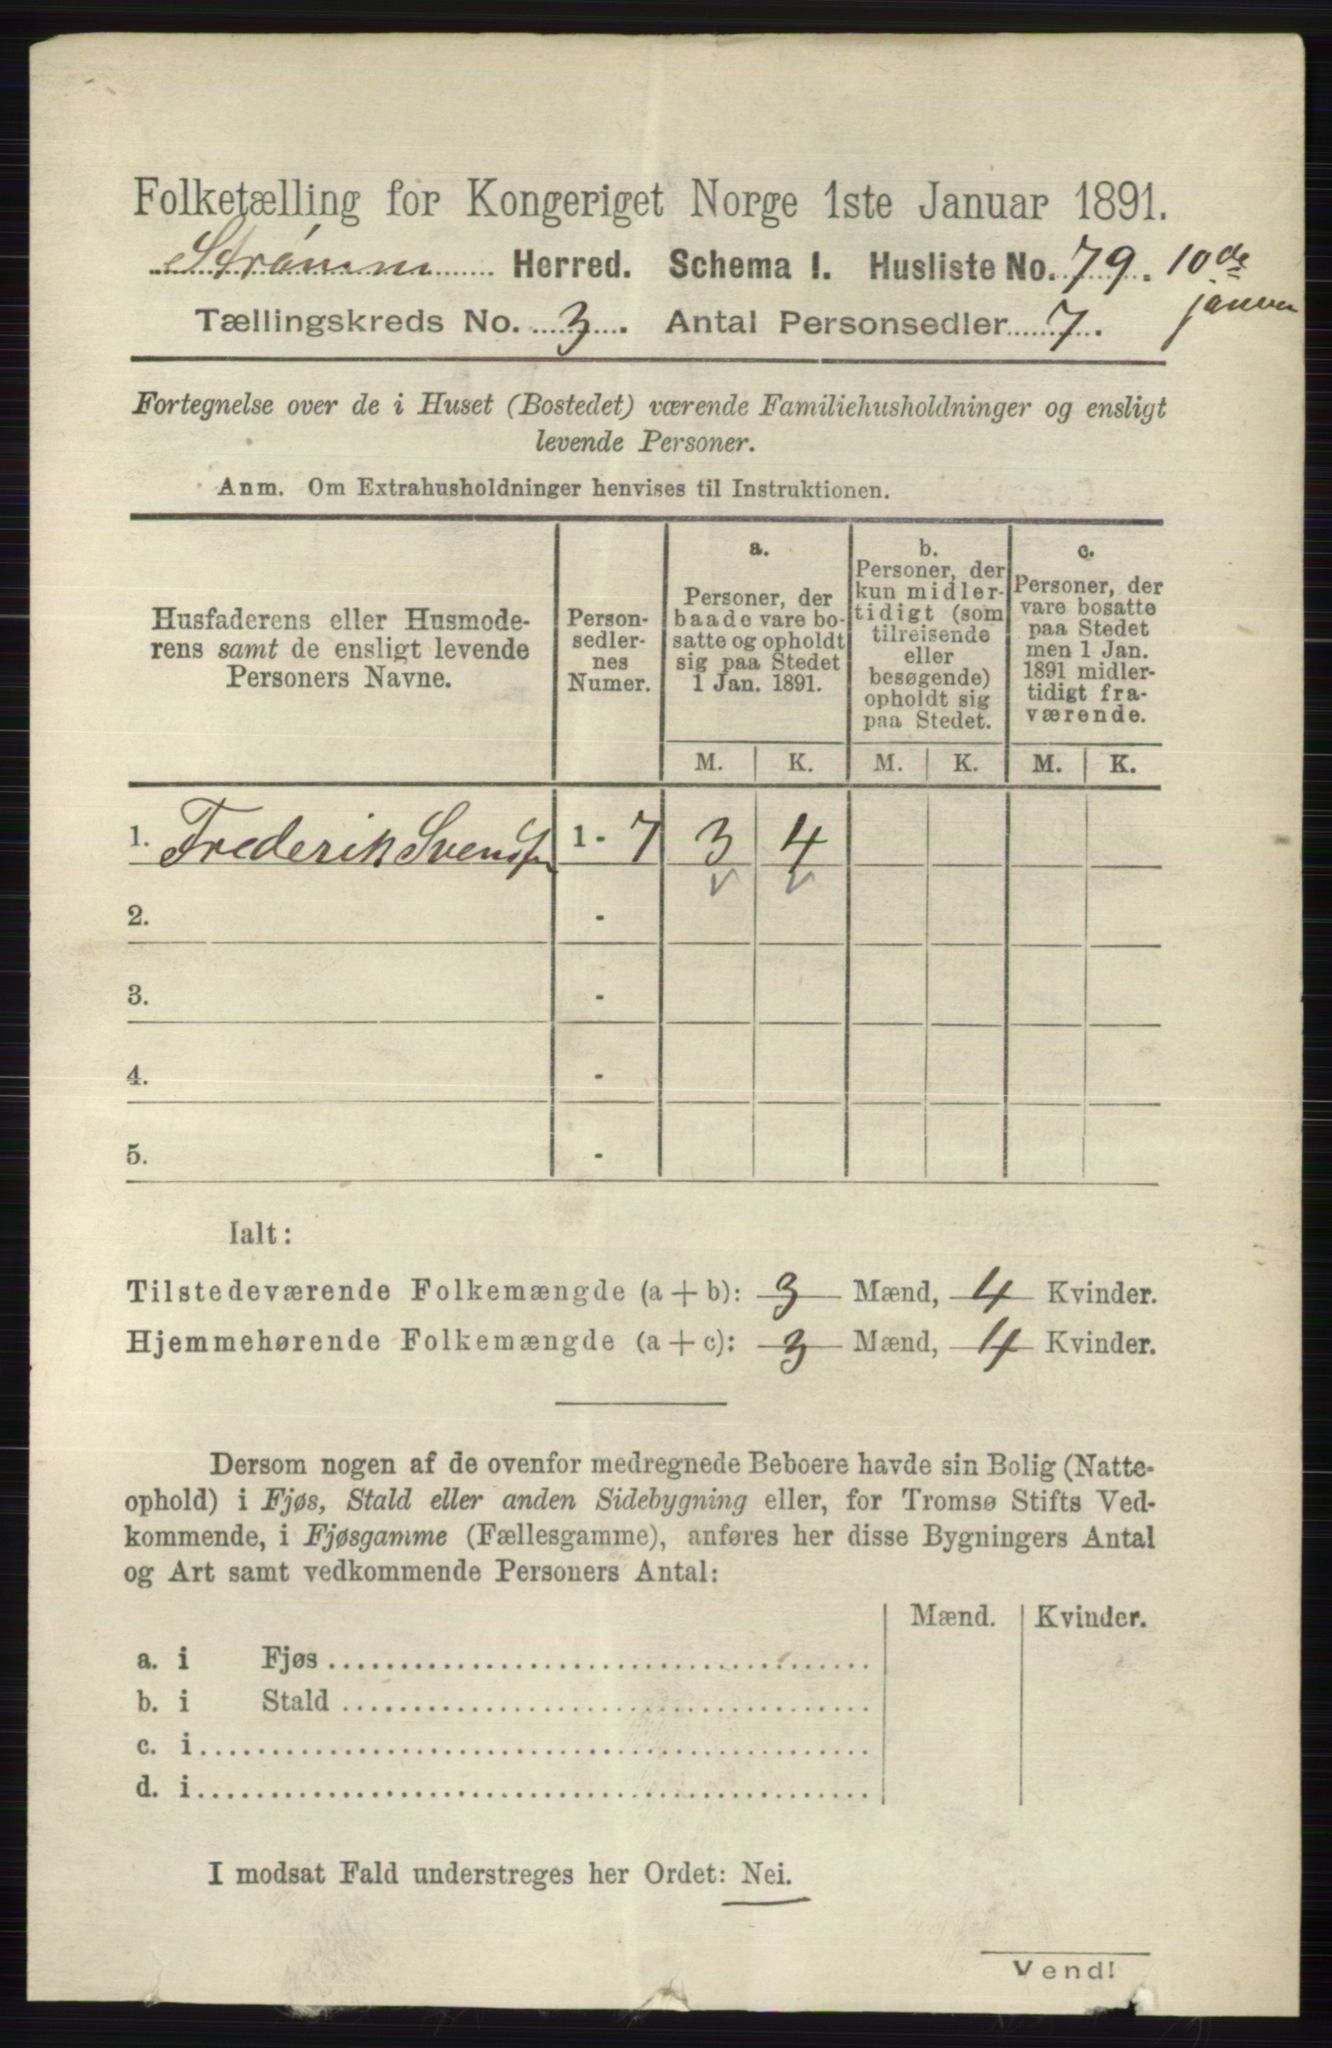 Folketælling for Kongeriget Norge 1ste Januar 1891.
Strømm Herred. Schema I. Husliste No. 79. 10de
Tællingskreds No. 3. Antal Personsedler 7.
Fortegnelse over de i Huset (Bostedet) værende Familiehusholdninger og ensligt
levende Personer.
Anm. Om Extrahusholdninger henvises til Instruktionen.
Husfaderens eller Husmode-
rens samt de ensligt levende
Personers Navne.
Person-
sedler-
nes
Numer.
a.
Personer, der
baade vare bo-
satte og opholdt
sig paa Stedet
1 Jan. 1891.
b.
Personer, der
kun midler-
tidigt (som
tilreisende
eller
besøgende)
opholdt sig
paa Stedet.
c.
Personer, der
vare bosatte
paa Stedet
men 1 Jan.
1891 midler-
tidigt fra-
værende.
M. K. M. K. M. K.
1. Frederik Svendsen 1 - 7 3 4
2. -
3. -
4. -
5. -
Ialt:
Tilstedeværende Folkemængde (a + b): 3 Mænd, 4 Kvinder.
Hjemmehørende Folkemængde (a + c): 3 Mænd, 4 Kvinder.
Dersom nogen af de ovenfor medregnede Beboere havde sin Bolig (Natte-
ophold) i Fjøs, Stald eller anden Sidebygning eller, for Tromsø Stifts Ved-
kommende, i Fjøsgamme (Fællesgamme), anføres her disse Bygningers Antal
og Art samt vedkommende Personers Antal:
Mænd. Kvinder.
a. i Fjøs
b. i Stald
c. i
d. i
I modsat Fald understreges her Ordet: Nei.
Vend!